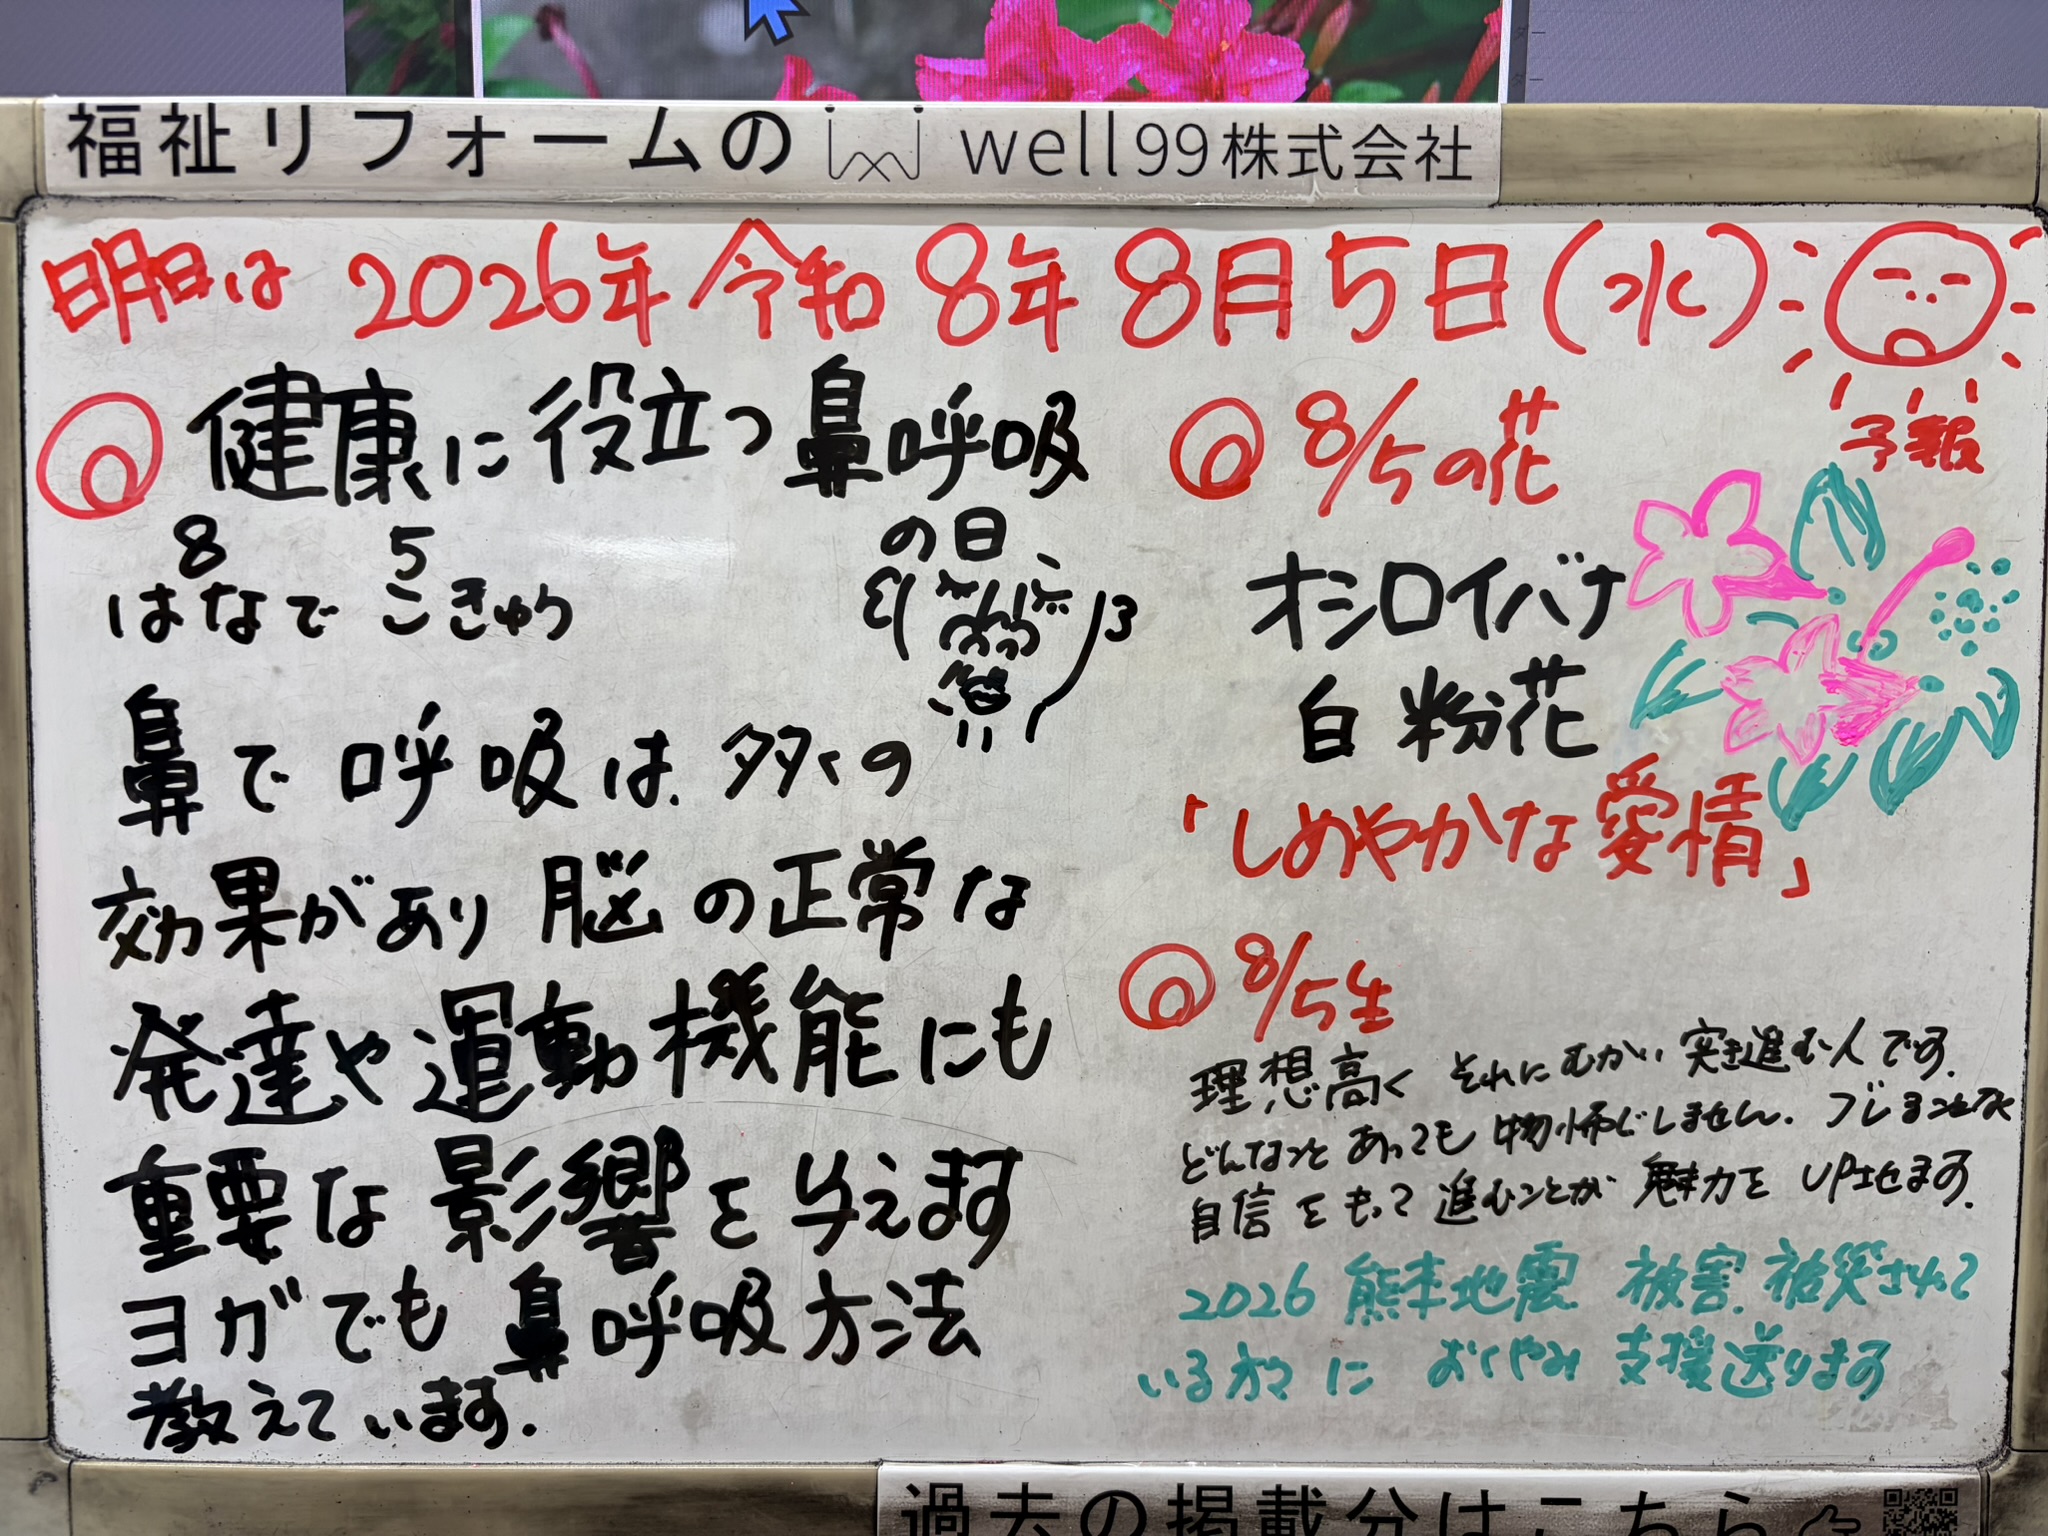 福祉リフォームの well99株式会社
明日は 2026年 令和 8年 8月5日(水)
予報
健康に役立つ鼻呼吸
の日
8 5
はなで こきゅう
鼻で呼吸は、多くの
効果があり 脳の正常な
発達や運動機能にも
重要な影響を与えます
ヨガでも鼻呼吸方法
教えています.
8/5の花
オシロイバナ
白粉花
「しめやかな愛情」
8/5生
理想高く それにむかい 突き進む人です.
どんなこと あっても 物怖じしません. ブレることなく
自信をもって 進むことが 魅力を UPさせます.
2026 熊本地震 被害、被災されて
いる方々に おくやみ 支援送ります
過去の掲載分はこちら